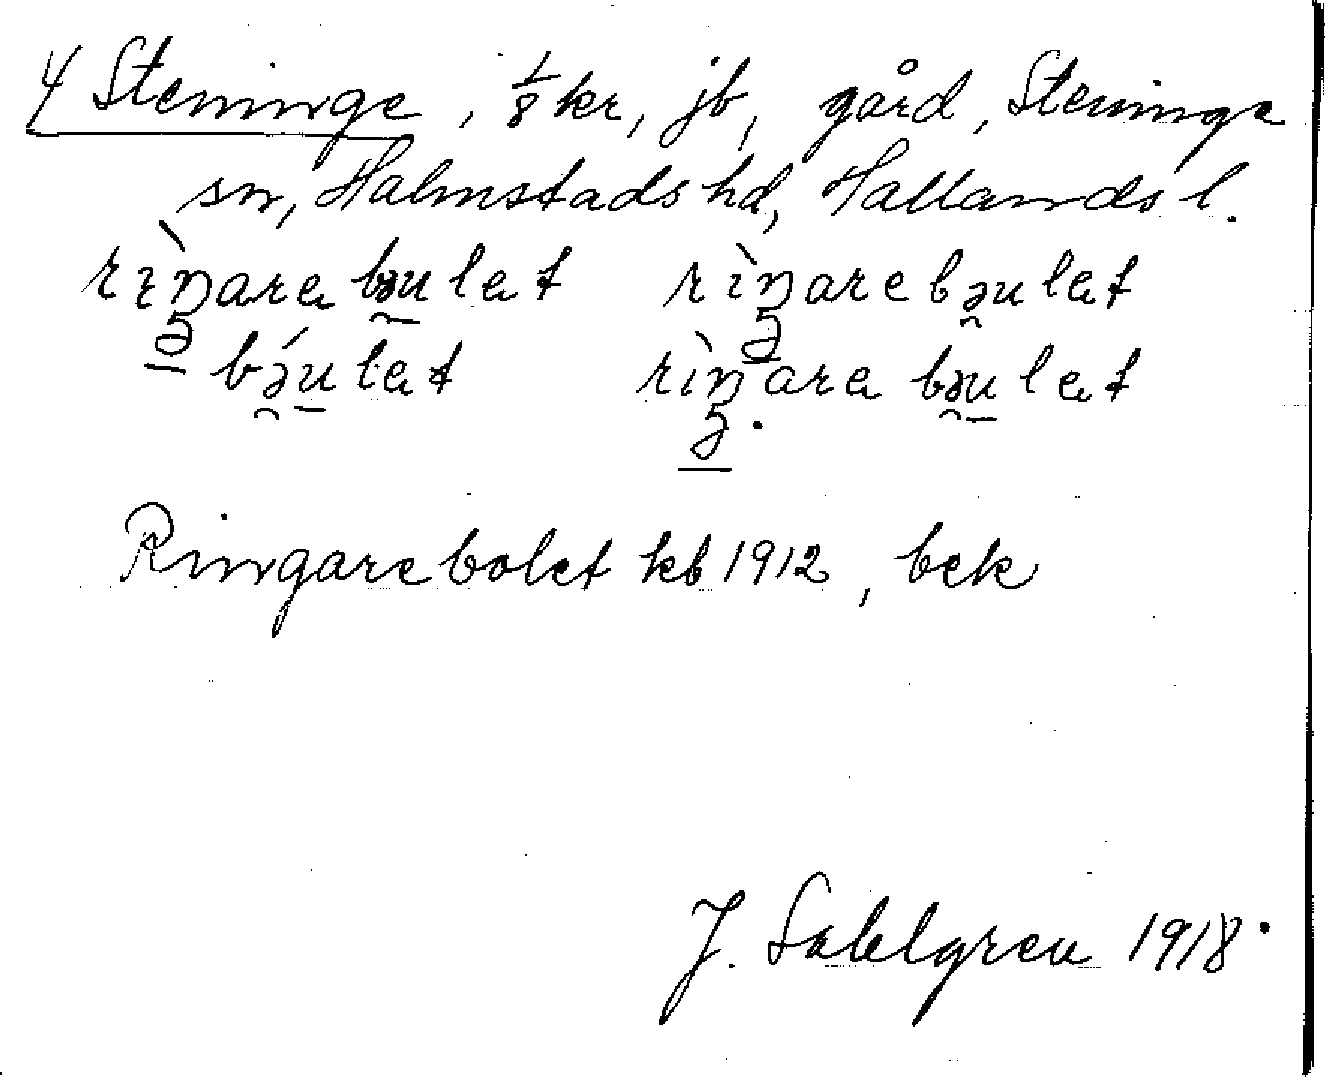 4 Steninge, 1/8 kr, jb, gård, Steninge
sn, Halmstads hd, Hallands l.
rìŋarebəulet rìŋarebəulet
bə́ulet rìŋarebəulet
Ringarebolet kb 1912, bek
J. Sahlgren 1918.